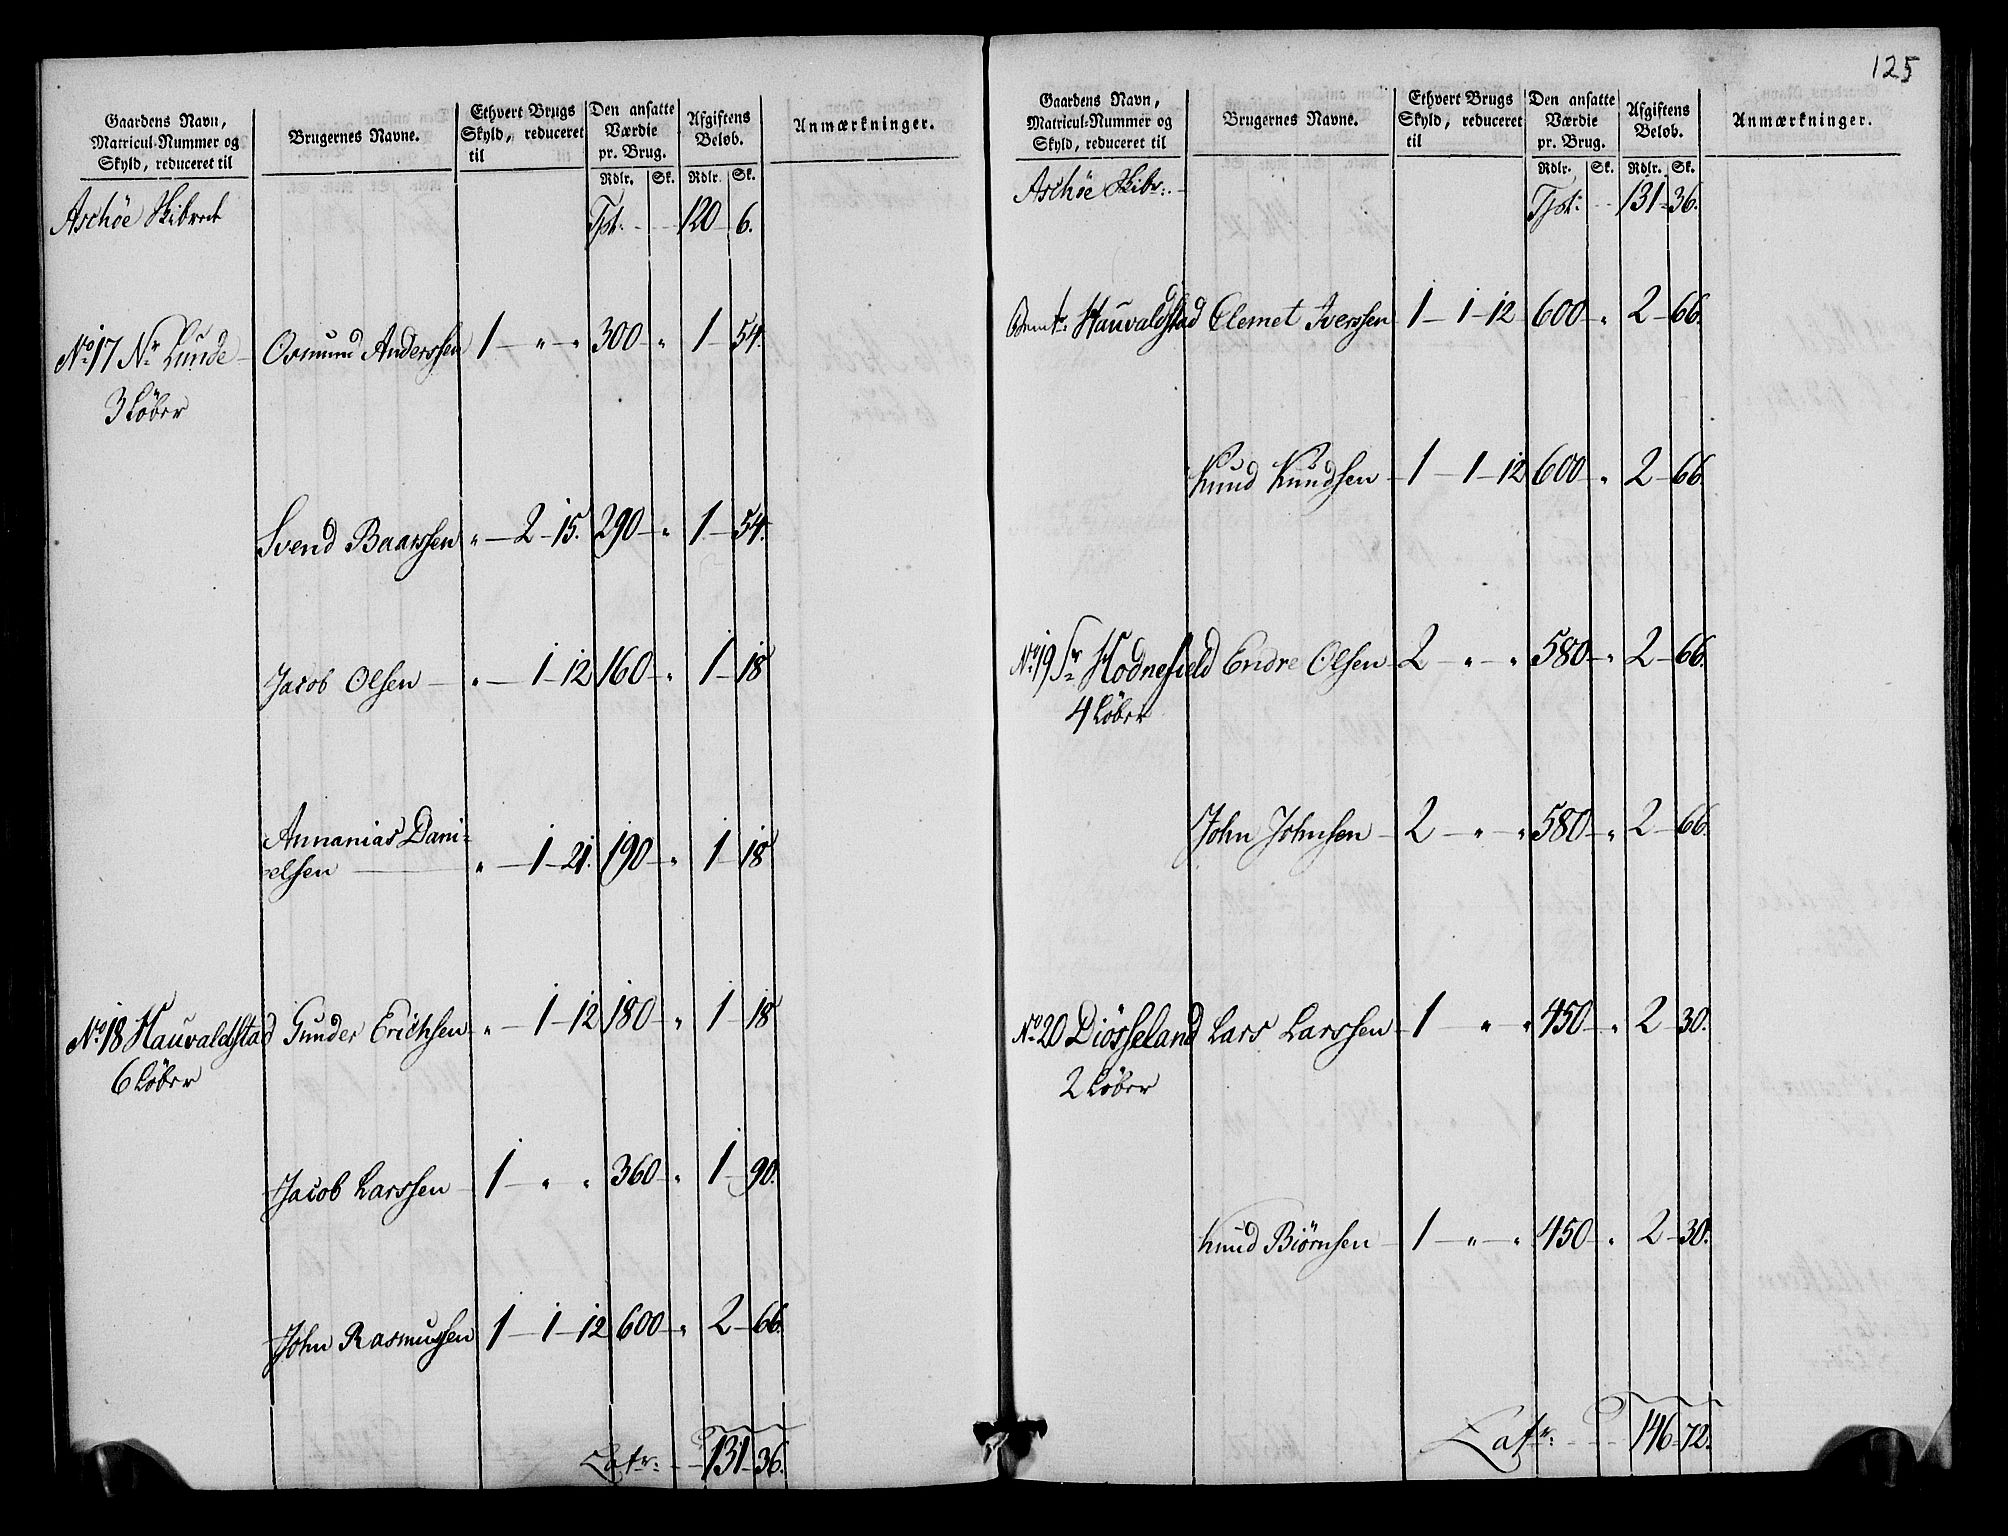 Gaardens Navn,
Matricul-Nummer og
Skyld, reduceret til
Brugernes Navne.
Ethvert Brugs
Skyld, reduceret
til
Den ansatte
Værdie
pr. Brug.
Afgiftens
Beløb.
Anmærkninger.
Rdlr. Sk. Rdlr. Sk.
Aschöe Skibred Tpt: 120 6.
No 17 Nr Lunde Osmund Anderssen 1 — " — " 300 — " 1 — 54.
3 Löber
Svend Baarssen " — 2 — 15. 290 — " 1 — 54.
Jacob Olsen — " — 1 — 12 160 — " 1 — 18
Annanias Dani-
elsen — " — 1 — 21. 190 — " 1 — 18
No 18 Hauvaldstad Gunder Erichsen " — 1 — 12 180 — " 1 — 18
6 Löber
Jacob Larssen 1 — " " 360 — " 1 — 90.
John Rasmussen 1 — 1 — 12 600 — " 2 — 66
Latr: 131 — 36.
125
Gaardens Navn,
Matricul-Nummer og
Skyld, reduceret til
Brugernes Navne.
Ethvert Brugs
Skyld, reduceret
til
Den ansatte
Værdie
pr. Brug.
Afgiftens
Beløb.
Anmærkninger.
Rdlr. Sk. Rdlr. Sk.
Aschöe Skibr: Tpt: 131 — 36.
Hauvaldstad Clemet Iverssen 1 — 1 — 12 600 — " 2 — 66.
Knud Knudsen — 1 — 1 — 12 600 — " 2 — 66.
No 19 Sr Hodnefield Endre Olsen 2 — " — " 580 — " 2 — 66.
4 Löber
John Johnsen — 2 — " — " 580 — " 2 — 66.
No 20 Diösseland Lars Larssen — 1 — " " 450 — " 2 — 30.
2 Löber
Knud Biörnsen — 1 — " — " 450 — " 2 — 30.
Latr: 146 — 72.